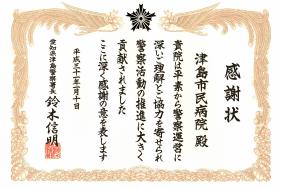 感謝状
津島市民病院 殿
貴院は平素から警察運営に
深いご理解とご協力を寄せられ
警察活動の推進に大きく
貢献されました
ここに深く感謝の意を表します
平成三十一年一月十日
愛知県津島警察署長 鈴木信明